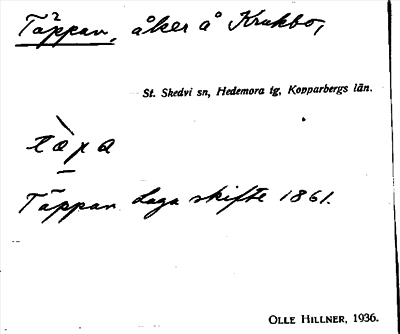 Täppan, åker å Krukbo,
St. Skedvi sn, Hedemora tg, Kopparbergs län.
Täppan Laga skifte 1861.
OLLE HILLNER, 1936.